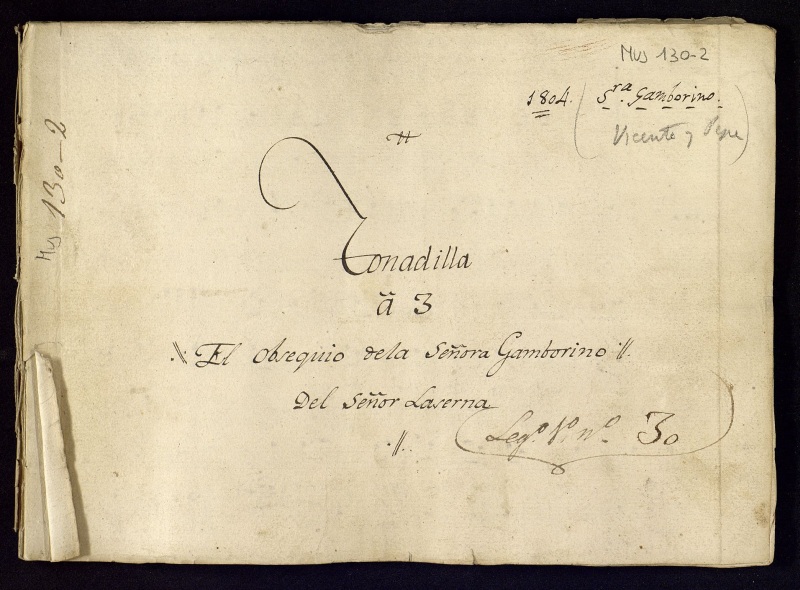 Mus 130-2
1804. Sra. Gamborino.
Vicente y Pepe
Mus 130-2
Tonadilla
ã 3
El obsequio dela Señora Gamborino //.
Del Señor Laserna
//.
Legº. 1º nº. 30